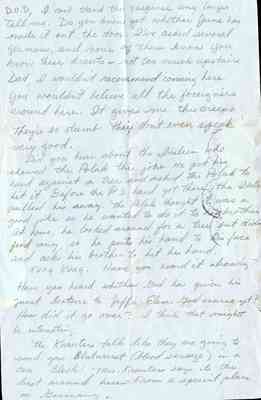 D.O.D., I can't stand the suspense any longer
Tell me. Do you know yet whether June has
made it out the door. I've asked several
Germans, and none of them know. You
know their diets - not too much upstairs
Dad I wouldn't recommend coming here
You wouldn't believe all the foreigners
around here. It gives me the creeps
they're so dumb they don't even speak
very good.
Did you hear about the Italian who
showed the Polak this joke. He put his
hand against a tree and asked the Polak to
hit it. Before the P's hand got there, the Italian
pulled his away. The Polak thought it was a
good joke so he wanted to do it to his brother
At home, he looked around for a tree but didn't
find any, so he puts his hand to his face
and asks his brother to hit his hand.
Have you heard it already
Have you heard whether Dad has given his
guest lecture to
How did it go over? I think that might
be interesting.
The Kranters talk like they are going to
send you Blutwurst (blood sausage) in a
can. Blech! Mrs. Kranters says it's the
best around here. From a special place
in Germany.